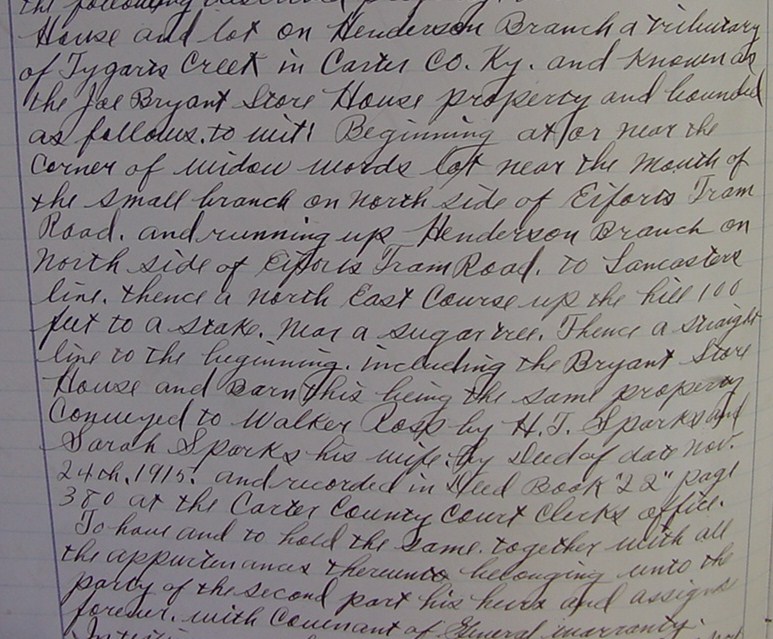 the following described
House and lot on Henderson Branch a tributary
of Tygarts Creek in Carter Co. Ky. and known as
the Joe Bryant Store House property and bounded
as follows. to wit! Beginning at or near the
Corner of widow words lot near the mouth of
the small branch on north side of Eiforts Tram
Road. and running up Henderson Branch on
north side of Eiforts Tram Road. to Lancasters
line. thence a north East Course up the hill 100
feet to a stake. near a sugar tree. Thence a straight
line to the beginning. including the Bryant Store
House and Barn this being the same property
Conveyed to Walker Ross by H. T. Sparks and
Sarah Sparks his wife. By Deed of date Nov.
24th. 1915. and recorded in Deed Book "22" page
380 at the Carter County Court Clerks office.
To have and to hold the same. together with all
the appurtenances thereunto belonging unto the
party of the second part his heirs and assigns
forever. with Covenant of General warranty.